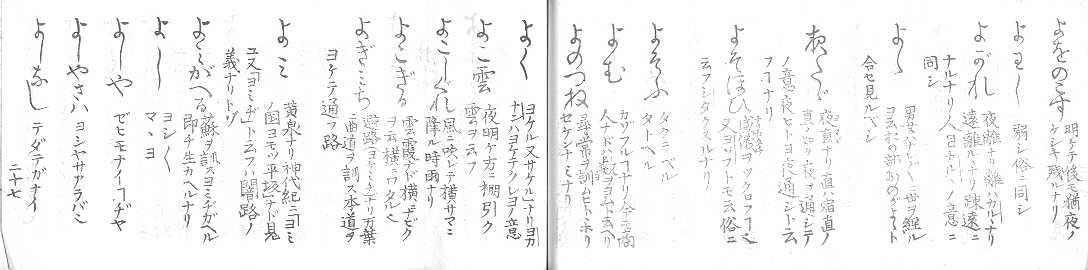 よをのこす
明ケテ後モ猶夜ノ
ケシキ残ルナリ
よわし
弱シ俗ニ同シ
よがれ
夜離ルナリ離ハカルヽナリ
遠離ルナリ疎遠ニ
ナルナリ人目カルノ意ニ
同シ
男女
合セ見ルベシ
夜直ナリ直ハ宿直ノ
ノ意夜ヒト夜通シト云
フコナリ
よそほひ
又ヨソフトモ云俗ニ
云フシタクスルナリ
よそふ
タクラベル
タトヘル
よむ
カゾフルコナリ今モ商
人ナドハ数ヲヨムト云ヘリ
よのつね
尋常ヲ訓ムヒトトホリ
セケンナミナリ
よく
ヨケル又サケルナリヨカ
ナンハヨケテクレヨノ意
よこ雲
夜明ケ方ニ棚引ク
雲ヲ云フ
よこしぐれ
風ニ吹レテ横サマニ
降ル時雨ナリ
よこぎる
雲霞ナド横ニナビク
ヲ云横ニワタル
よぎみち
避路(ヨケミチ)ナリ万葉
ニ曲道ヲ訓ス本道ヲ
ヨケテ通フ路
よみ
黄泉ナリ神代紀ニヨミ
ノ国ヨモツ平坂ナド見
ユ又ヨミヂト云フハ闇路ノ
義ナリトゾ
よみがへる
蘇ヲ訓スヨミヂカヘル
即チ生カヘルナリ
よし
ヨシ〱
マヽヨ
よしや
ゼヒモナイコヂヤ
よしやさハ
ヨシヤサアラバ
よしなし
テダテガナイ
二十七